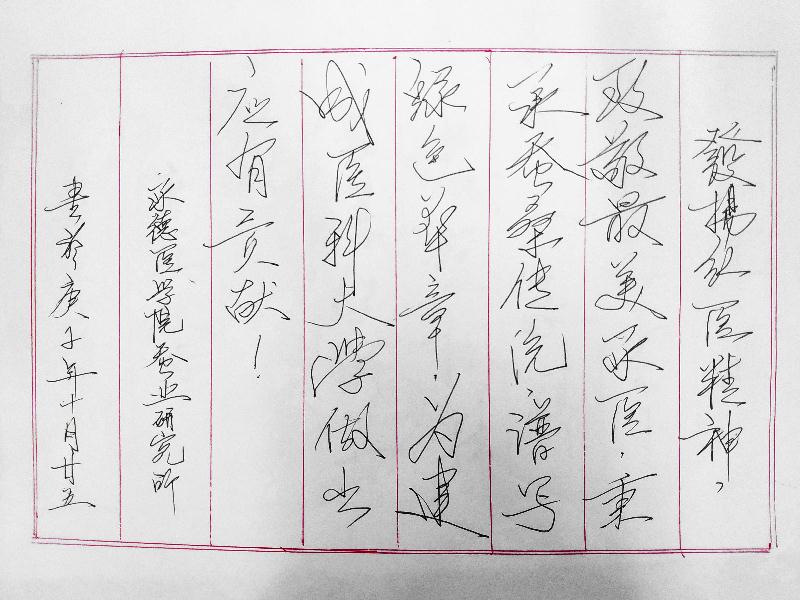 發揚红医精神，
致敬最美承医，秉
承蚕桑传统谱写
绿色华章，为建
成医科大學做出
应有贡献！
承德医学院蚕业研究所
書於庚子年十月廿五